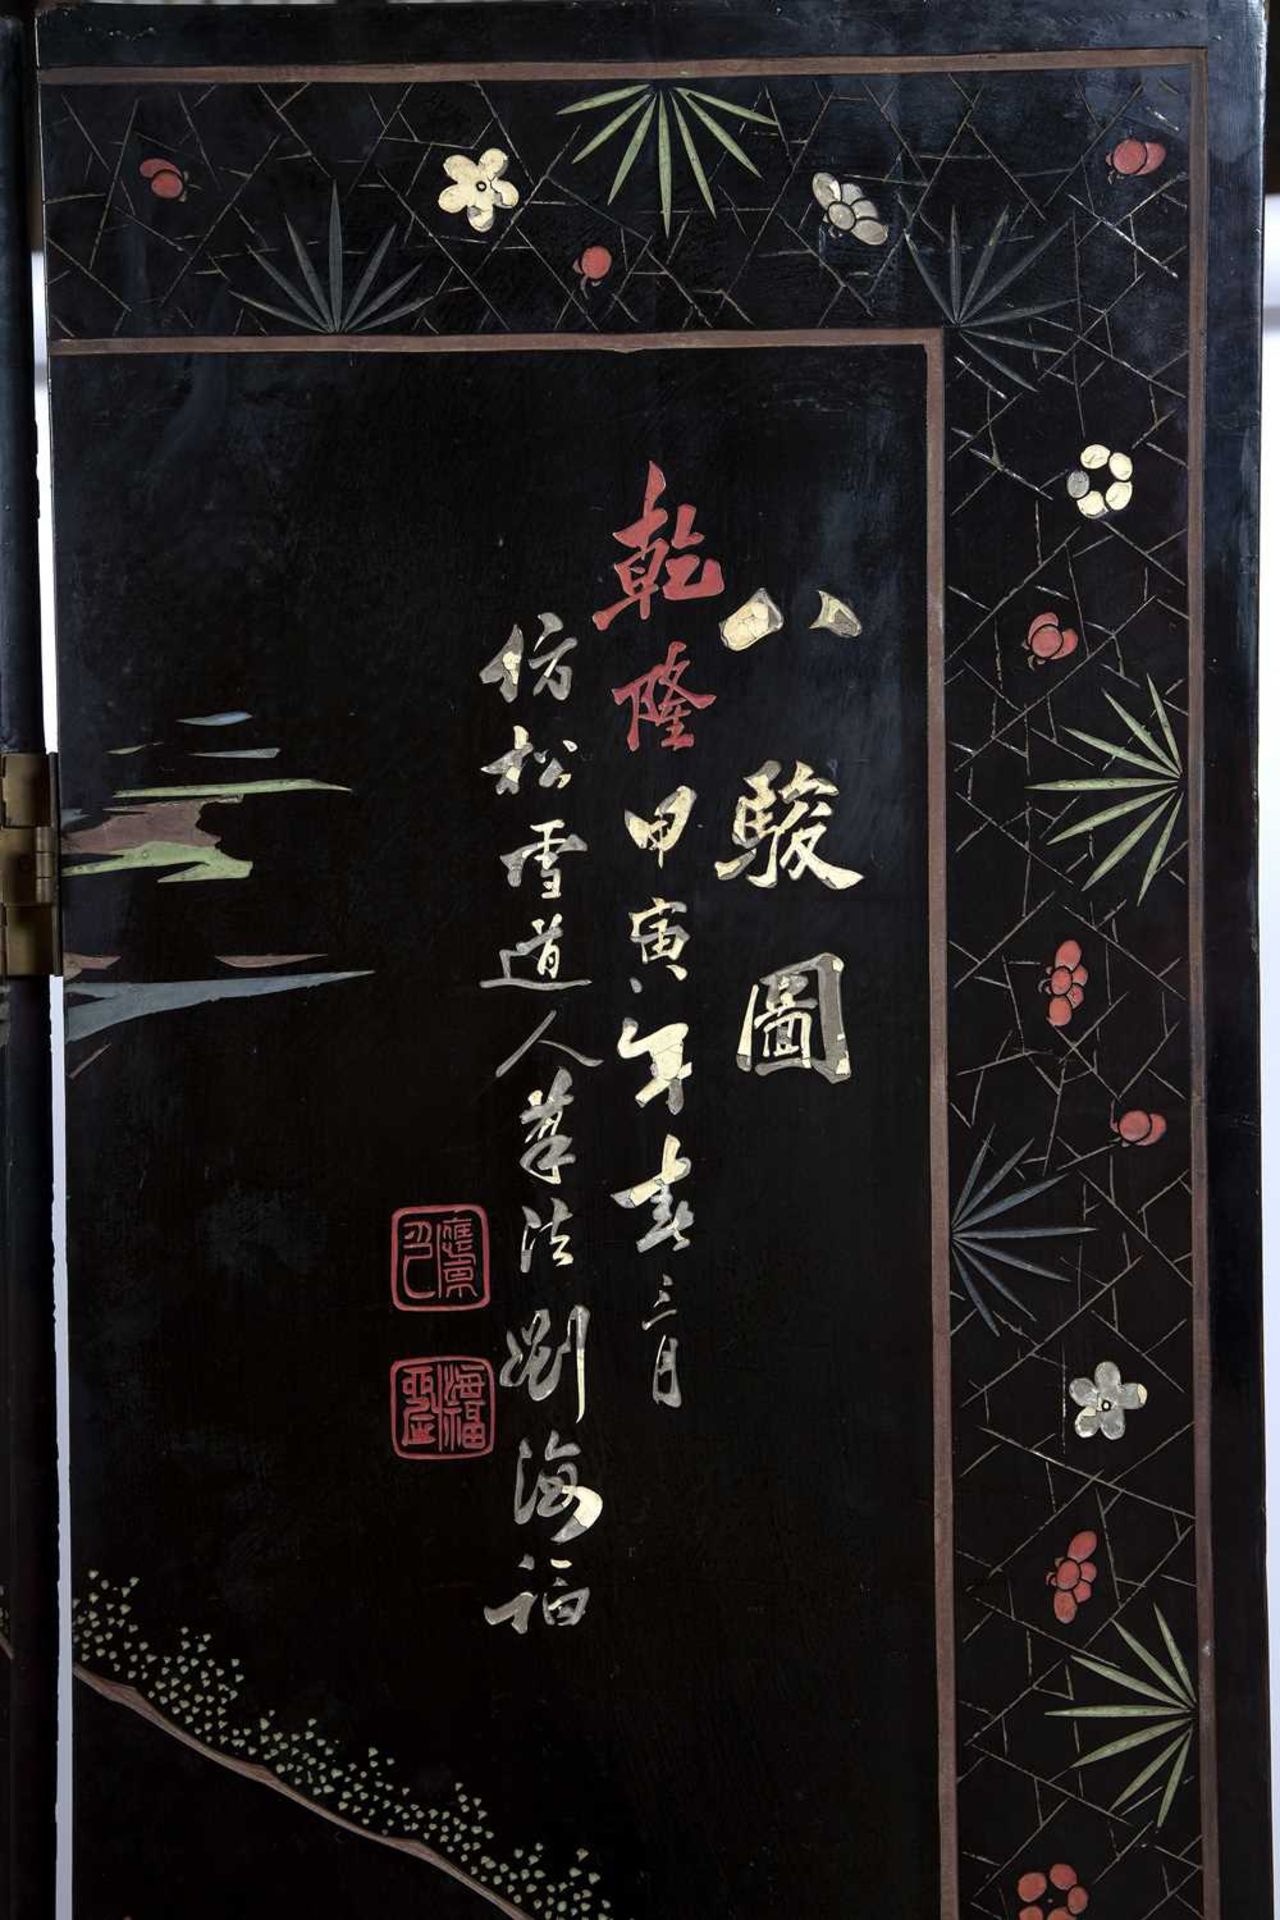 八駿圖
乾隆甲寅年春三月
仿松雪道人筆法劉海福
海福